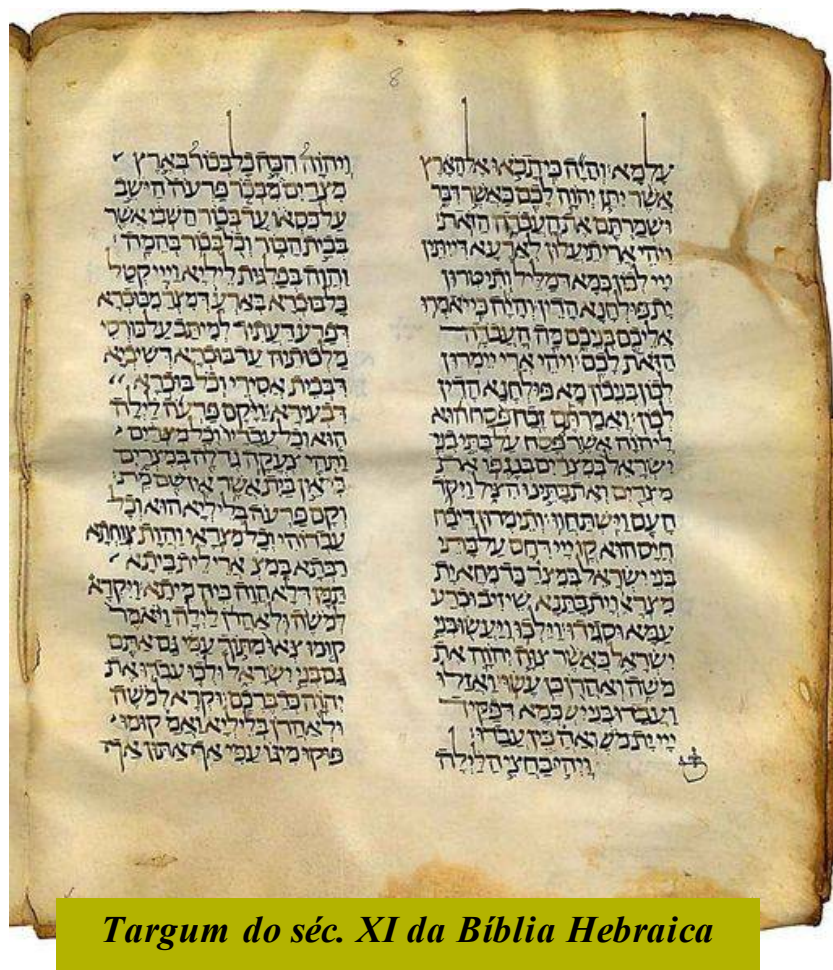 8
עלמא׃ והיה כי תבאו אל הארץ
אשר יתן יהוה לכם כאשר דבר
ושמרתם את העבדה הזאת׃
ויהי ארי תעלון לארעא דייתין
ייי לכון כמא דמליל ותיטרון
ית פולחנא הדין׃ והיה כי יאמרו
אליכם בניכם מה העבדה
הזאת לכם׃ ויהי ארי יימרון
לכון בניכון מא פולחנא הדין
לכון׃ ואמרתם זבח פסח הוא
ליהוה אשר פסח על בתי בני
ישראל במצרים בנגפו את
מצרים ואת בתינו הציל ויקד
העם וישתחוו׃ ותימרון דיבח
חיס הוא קד ייי רחם על בתי
בני ישראל במצר כד מחא ית
מצראי וית בתנא שיזיב וכרע
עמא וסגידו׃ וילכו ויעשו בני
ישראל כאשר צוה יהוה את
משה ואהרן כן עשו׃ ואזלו
ועבדו בני יש כמא דפקיד
ייי ית מש ואה כין עבדו׃
ויהי בחצי הלילה
ויהוה הכה כל בכור בארץ
מצרים מבכר פרעה הישב
על כסאו עד בכור השבי אשר
בבית הבור וכל בכור בהמה׃
והוה בפלגות ליליא וייי קטל
כל בוכרא בארע דמצר מבוכרא
דפרע דעתיד למיתב על כורסי
מלכותיה עד בוכרא דשיביא
דבבית אסירי וכל בוכרא
דבעירא׃ ויקם פרעה לילה
הוא וכל עבדיו וכל מצרים
ותהי צעקה גדלה במצרים
כי אין בית אשר אין שם מת׃
וקם פרעה בליליא הוא וכל
עבדוהי וכל מצראי והות צוחתא
רבתא במצ ארי לית ביתא
תמן דלא הוה ביה מיתא׃ ויקרא
למשה ולאהרן לילה ויאמר
קומו צאו מתוך עמי גם אתם
גם בני ישראל ולכו עבדו את
יהוה כדברכם׃ וקרא למשה
ולאהרן בליליא ואמ קומו
פוקו מיגו עמי אף אתון אף
Targum do séc. XI da Bíblia Hebraica